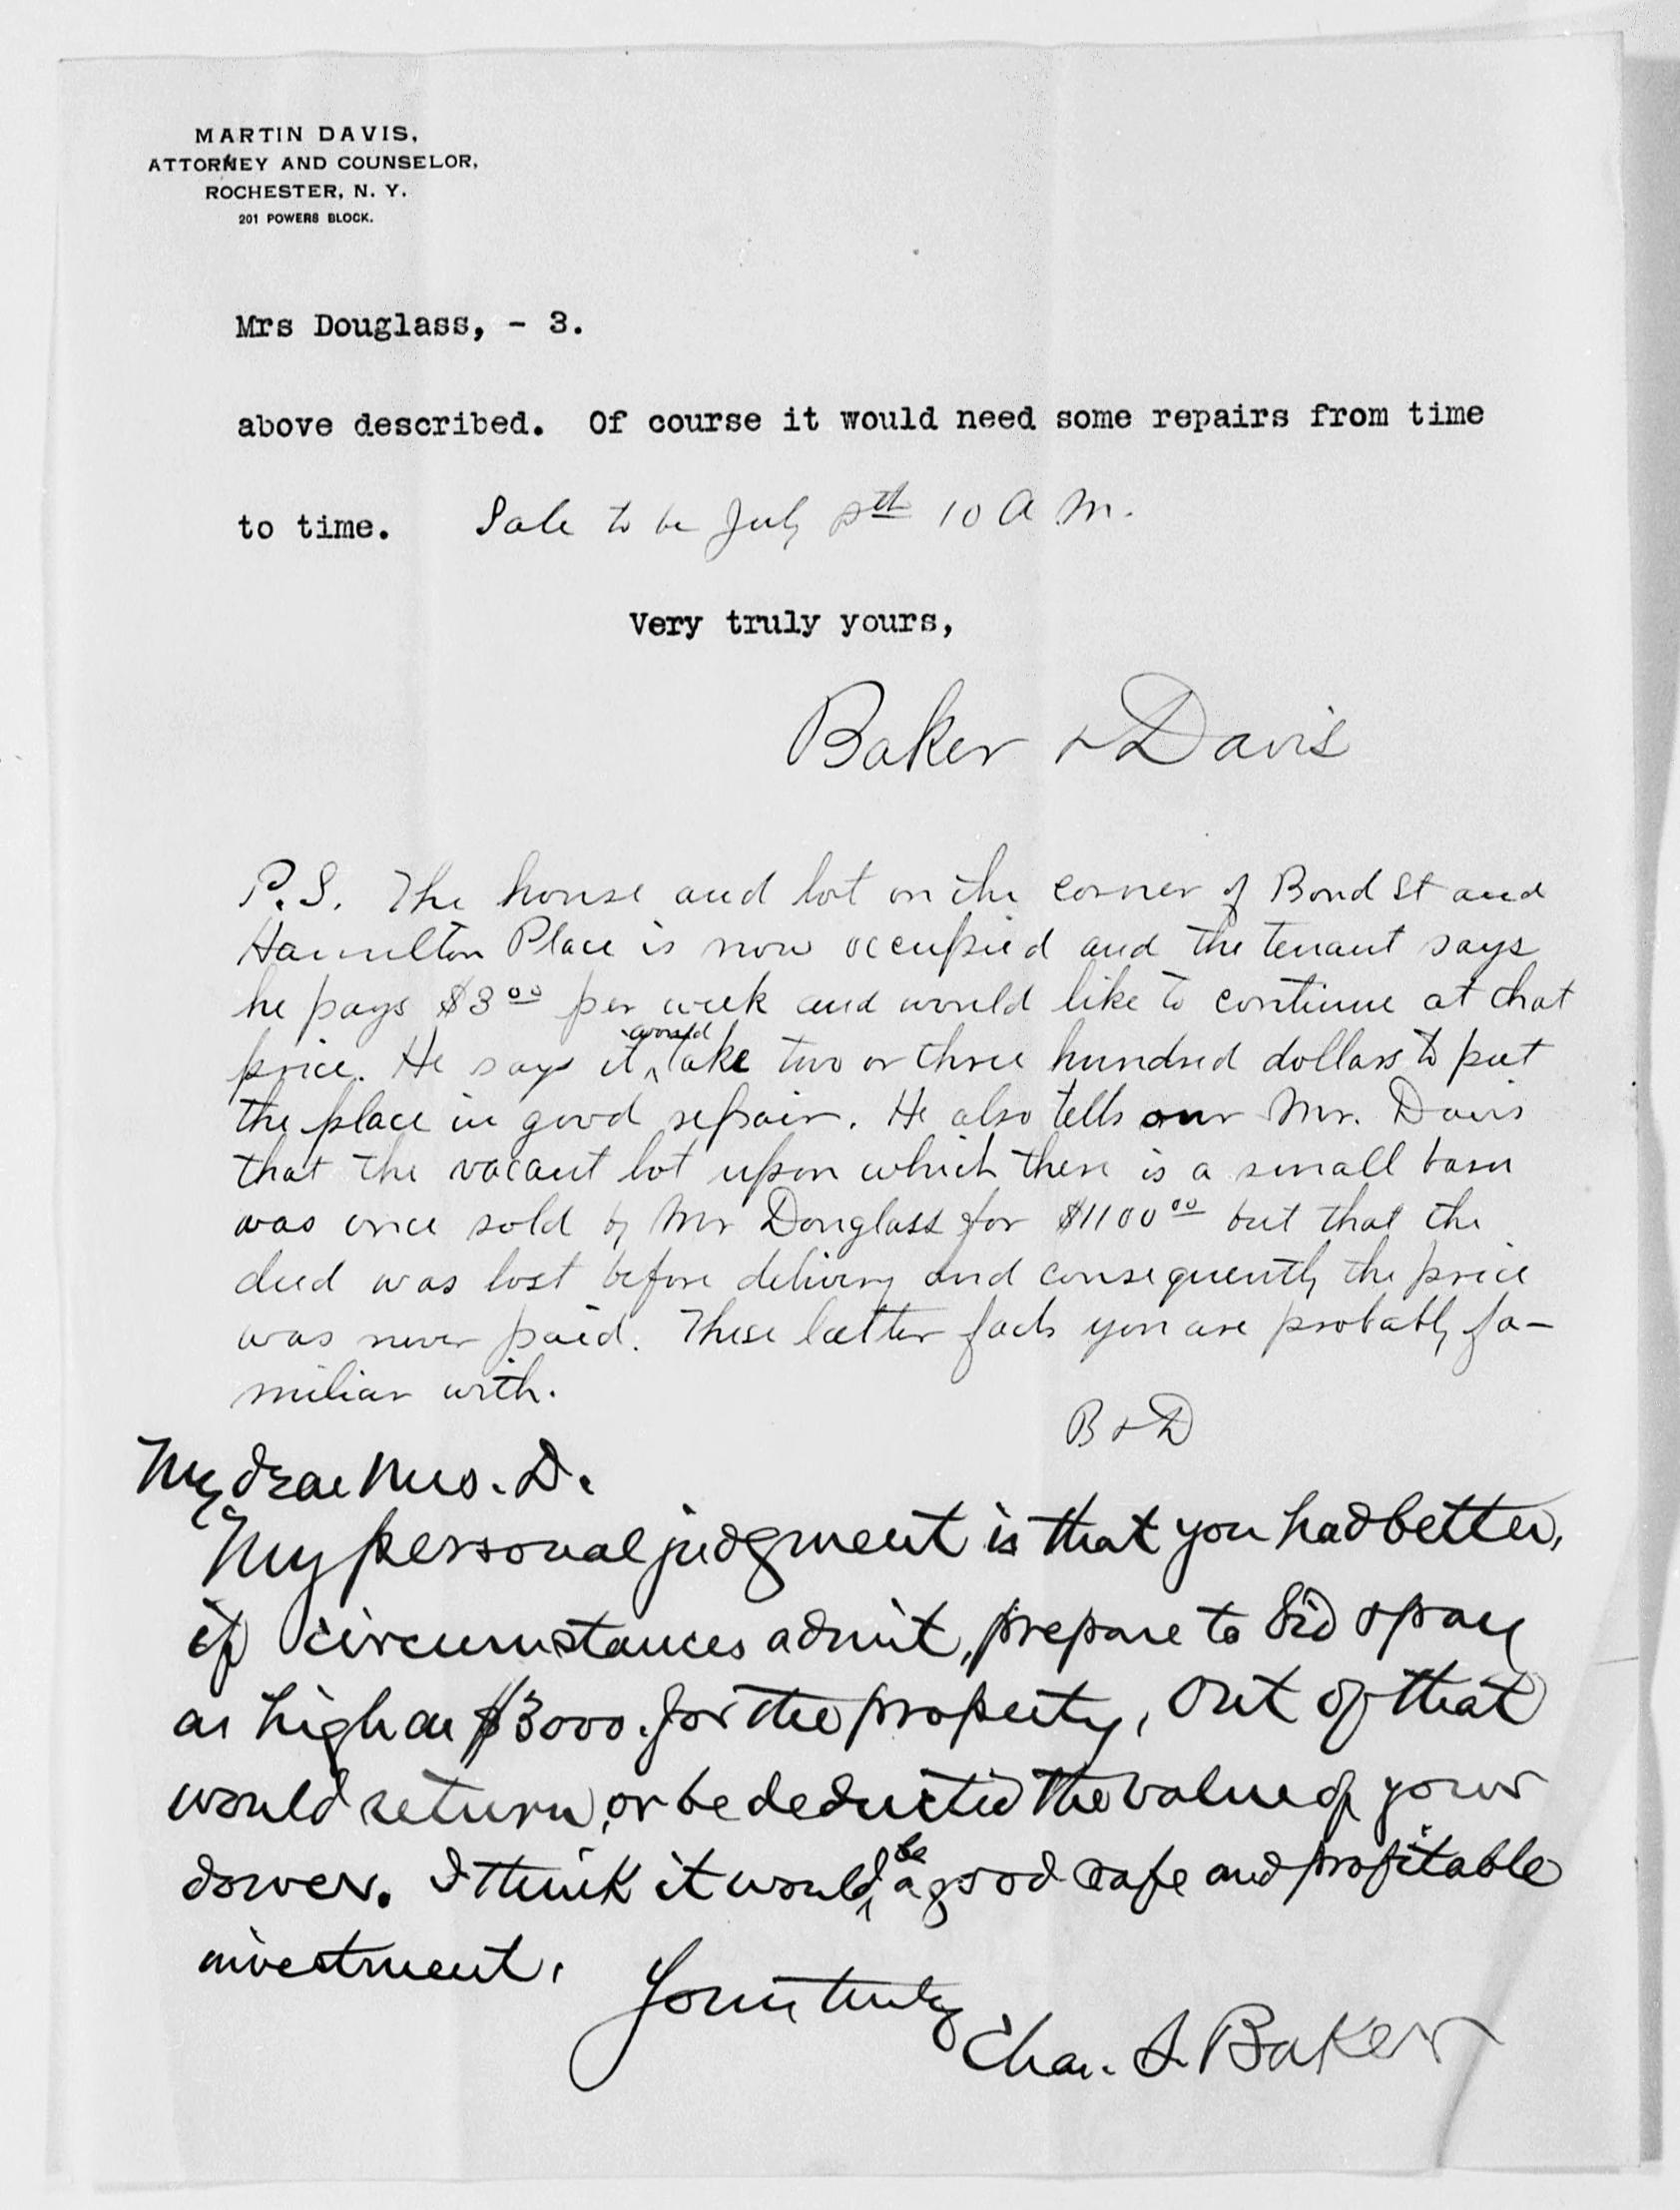 MARTIN DAVIS,
ATTORNEY AND COUNSELOR,
ROCHESTER, N. Y.
201 POWERS BLOCK.
Mrs Douglass, - 3.
above described. Of course it would need some repairs from time
to time. Sale to be July 5th 10 A M.
Very truly yours,
Baker & Davis
P.S. The house and lot on the corner of Bond St and
Hamilton Place is now occupied and the tenant says
he pays $3 00 per week and would like to continue at that
price. He says it would take two or three hundred dollars to put
the place in good repair. He also tells our Mr. Davis
that the vacant lot upon which there is a small barn
was once sold by Mr Douglass for $1100 00 but that the
deed was lost before delivery and consequently the price
was never paid. These latter facts you are probably fa-
miliar with.
B & D
My dear Mrs. D.
My personal judgment is that you had better,
if circumstances admit, prepare to bid & pay
as high as $3000. for the property, out of that
would return, or be deducted the value of your
dower. I think it would be a good safe and profitable
investment.
Yours truly
Chas. S. Baker